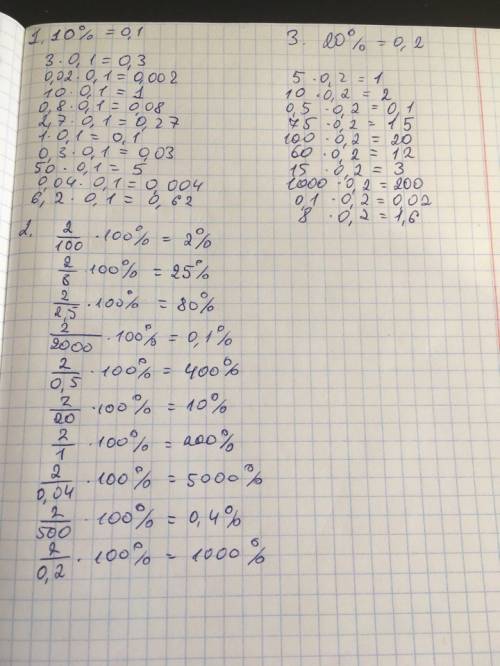 1. 10% = 0,1
3 · 0,1 = 0,3
0,02 · 0,1 = 0,002
10 · 0,1 = 1
0,8 · 0,1 = 0,08
2,7 · 0,1 = 0,27
1 · 0,1 = 0,1
0,3 · 0,1 = 0,03
50 · 0,1 = 5
0,04 · 0,1 = 0,004
6,2 · 0,1 = 0,62
2. 2/100 · 100% = 2%
2/8 · 100% = 25%
2/2,5 · 100% = 80%
2/2000 · 100% = 0,1%
2/0,5 · 100% = 400%
2/20 · 100% = 10%
2/1 · 100% = 200%
2/0,04 · 100% = 5000%
2/500 · 100% = 0,4%
2/0,2 · 100% = 1000%
3. 20% = 0,2
5 · 0,2 = 1
10 · 0,2 = 2
0,5 · 0,2 = 0,1
75 · 0,2 = 15
100 · 0,2 = 20
60 · 0,2 = 12
15 · 0,2 = 3
1000 · 0,2 = 200
0,1 · 0,2 = 0,02
8 · 0,2 = 1,6